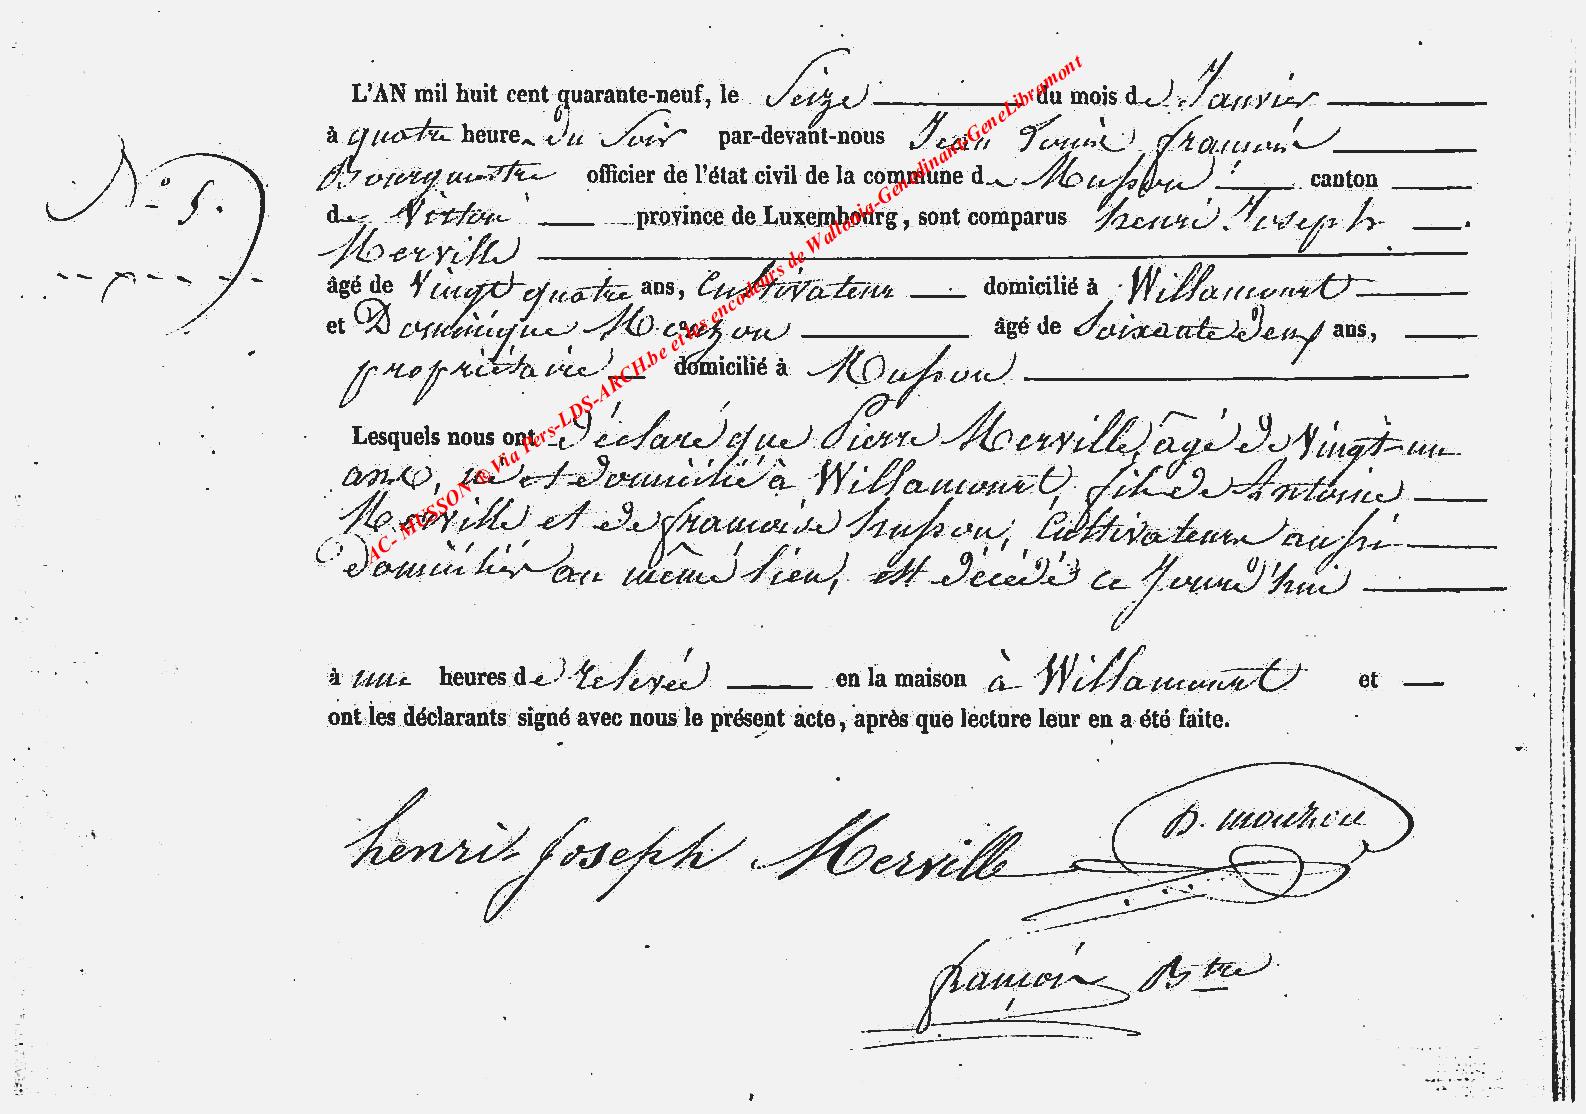 N° 5.
L'AN mil huit cent quarante-neuf, le Seize du mois de Janvier
à quatre heure du Soir par-devant-nous Jean Louis françois
Bourgmestre officier de l'état civil de la commune de Musson canton
de Virton province de Luxembourg, sont comparus henri Joseph
Merville
âgé de Vingt quatre ans, Cultivateur domicilié à Willancourt
et Dominique âgé de Soixante deux ans,
propriétaire domicilié à Musson
Lesquels nous ont déclaré que Pierre Merville, âgé de Vingt-un
ans, né et domicilié à Willancourt, fils de Antoine
Merville et de françoise husson, Cultivateurs aussi
domiciliés au même lieu, est décédé ce Jourd'hui
à une heures de relevée en la maison à Willancourt et
ont les déclarants signé avec nous le présent acte, après que lecture leur en a été faite.
henri Joseph Merville D. mouzon
françois Btre
AC- MUSSON © Via Pers-LDS-ARCH.be et les encodeurs de Wallonia-Genedinant-GeneLibramont